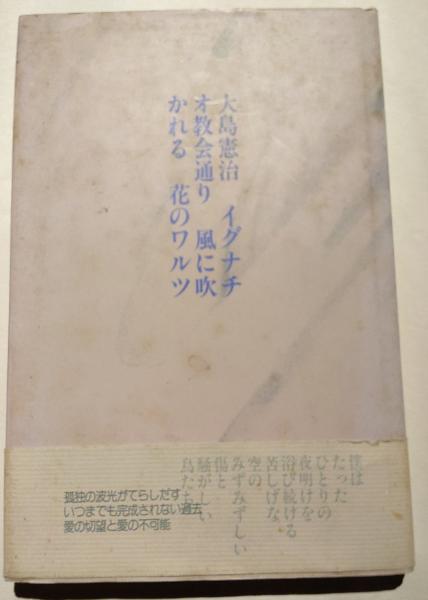 大島憲治　イグナチ
オ教会通り　風に吹
かれる　花のワルツ
僕は
たった
ひとりの
夜明けを
浴び続ける
苦しげな
空の
みずみずしい
傷と
騒がしい
鳥たち
孤独の波光がてらしだす
いつまでも完成されない過去
愛の切望と愛の不可能